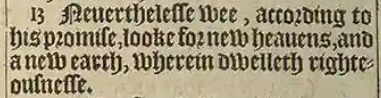 13 Neuertheleſſe wee, according to
his promiſe, looke for new heauens, and
a new earth, wherein dwelleth righte-
ouſneſſe.